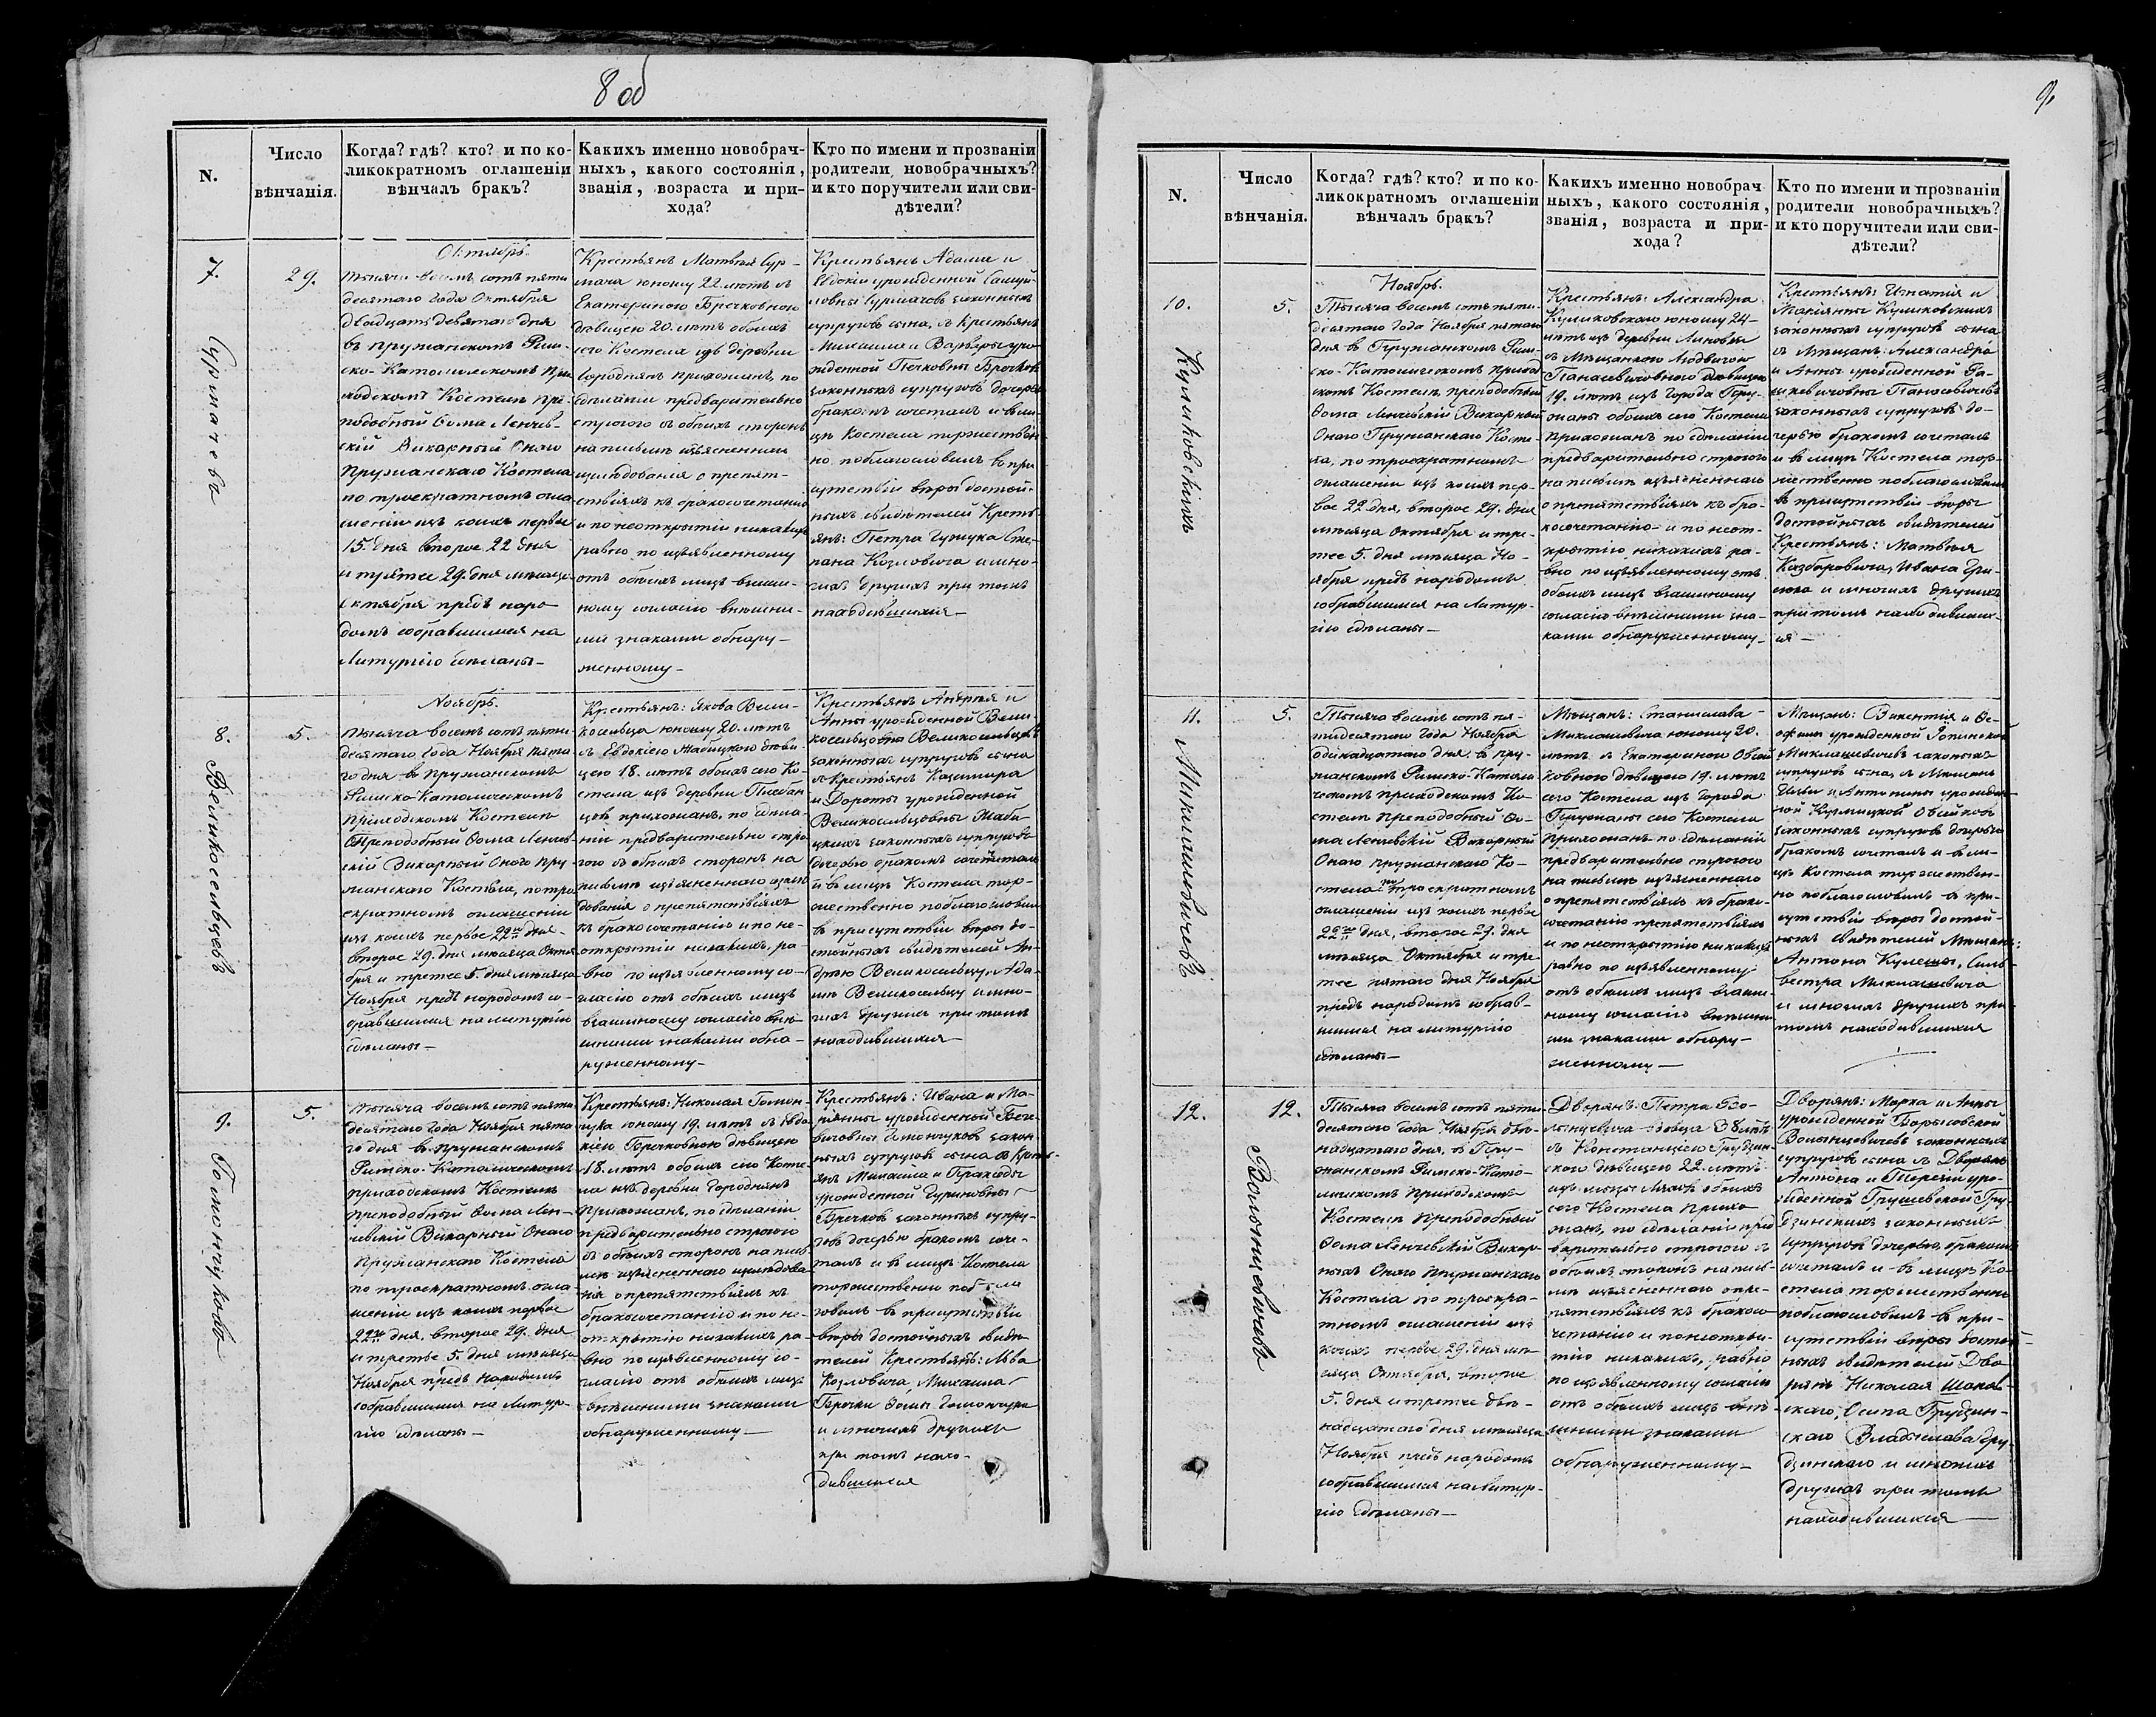 8 об
N.
Число
вѣнчанія.
Когда? гдѣ? кто? и по ко-
ликократномъ оглашеніи
вѣнчалъ бракъ?
Какихъ именно новобрач-
ныхъ, какого состоянія,
званія, возраста и при-
хода?
Кто по имени и прозваніи
родители новобрачныхъ?
и кто поручители или сви-
дѣтели?
7.
29.
Октябрь.
тысяча восемь сотъ пяти
десятаго года Октября
двадцать девятаго дня
въ пружанскомъ Рим-
ско-Католическомъ при
ходскомъ Костелѣ пре-
подобный Фома Ленчев-
скій Викарный Онаго
Пружанскаго Костела
по троекратномъ огла
шеніи изъ коихъ первое
15. дня второе 22 дня
и третее 29. дня мѣсяца
Октября предъ наро
домъ собравшимся на
Литургію сдѣланы—
Крестьянъ Матвея Сур-
мача юношу 22 лѣтъ съ
Екатериною Брочковною
дѣвицею 20. лѣтъ обоихъ
сего Костела изъ деревни
Городнянъ прихожанъ, по
сдѣланіи предварительно
строгого съ обѣихъ сторонъ
на письмѣ изъясненнаго
изслѣдованія о препят-
ствіяхъ къ бракосочетанію
и по неоткрытіи никакихъ
равно по изъявленному
отъ обоихъ лицъ взаим-
ному согласію внѣшни-
ми знаками обнару-
женному—
Крестьянъ Адама и
Евдокіи урожденной
Сурмачовъ законныхъ
супруговъ сына, съ Крестьянъ
Михаила и Варвары уро
жденной
законныхъ супруговъ дочерью
бракомъ сочеталъ и въ ли-
цѣ Костела торжествен
но поблагословилъ въ при
сутствіи вѣры достой-
ныхъ свидѣтелей Кресть
янъ: Петра Гущука Сте-
пана Козловича и мно-
гихъ другихъ при томъ
находившихся—
Сурмачевъ
8.
5.
Ноябрь.
тысяча восемь сотъ пяти
десятаго года Ноября пята
го дня въ пружанскомъ
Римско-Католическомъ
приходскомъ Костелѣ
Преподобный Фома Ленчев
скій Викарный Оного Пру
жанскаго Костела, по тро
екратномъ оглашеніи
изъ коихъ первое 22го дня
второе 29. дня мѣсяца Октя
бря и третее 5. дня мѣсяца
Ноября предъ народомъ со-
бравшимся на литургію
сдѣланы—
Крестьянъ: Якова Вели-
косельца юношу 20. лѣтъ
съ Евдокіею Жабицкою дѣви
цею 18. лѣтъ обоихъ сего Ко-
стела изъ деревни
прихожанъ, по сдѣла-
ніи предварительно стро
гого съ обѣихъ сторонъ на
письмѣ изъясненнаго изслѣ
дованія о препятствіяхъ
къ бракосочетанію и по не-
открытіи никакихъ, ра-
вно по изъявленному со-
гласію отъ обоихъ лицъ
взаимному согласію внѣ
шними знаками обна-
руженному—
Крестьянъ Андрея и
Анны урожденной Вели-
косельцовны Великосельцовъ
законныхъ супруговъ сына
съ Крестьянъ Казимира
и Дороты урожденной
Великосельцовны Жаби
цкихъ законныхъ супруговъ
дочерью бракомъ сочеталъ
и въ лицѣ Костела тор-
жественно поблагословилъ
въ присутствіи вѣры до-
стойныхъ свидѣтелей Ан-
дрею Великосельцу, Ада-
му Великосельцу и мно-
гихъ другихъ при томъ
находившихся—
Великосельцевъ
9.
5.
тысяча восемь сотъ пяти
десятаго года Ноября пята
го дня въ пружанскомъ
Римско-Католическомъ
приходскомъ Костелѣ
преподобный Фома Лен-
чевскій Викарный Онаго
Пружанскаго Костела
по троекратномъ огла
шеніи изъ коихъ первое
22го дня, второе 29. дня
и третье 5. дня мѣсяца
Ноября предъ народомъ
собравшимся на Литур-
гію сдѣланы—
Крестьянъ: Николая Гомон-
чука юношу 19. лѣтъ съ Евдо
кіею Брочковною дѣвицею
18. лѣтъ обоихъ сего Косте-
ла изъ деревни Городнянъ
прихожанъ, по сдѣланіи
предварительно строгого
съ обѣихъ сторонъ на пись
мѣ изъясненнаго изслѣдова
нія о препятствіяхъ къ
бракосочетанію и по не-
открытію никакихъ ра-
вно по изъявленному со-
гласію отъ обоихъ лицъ
внѣшними знаками
обнаруженному—
Крестьянъ: Ивана и Ма-
ріянны урожденной
Гомончуковъ закон-
ныхъ супруговъ сына съ Кресть-
янъ Михаила и Праксоды
урожденной Гуриновны
Брочковъ законныхъ супру-
говъ дочерью бракомъ соче-
талъ и въ лицѣ Костела
торжественно поблаго
словилъ въ присутствіи
вѣры достойныхъ свидѣ
телей Крестьянъ: Льва
Козловича, Михаила
Брочки Фомы Гомончука
и многихъ другихъ
при томъ нахо-
дившихся
Гомончуковъ
9.
N.
Число
вѣнчанія.
Когда? гдѣ? кто? и по ко-
ликократномъ оглашеніи
вѣнчалъ бракъ?
Какихъ именно новобрач
ныхъ, какого состоянія,
званія, возраста и при-
хода?
Кто по имени и прозваніи
родители новобрачныхъ?
и кто поручители или сви-
дѣтели?
10.
5.
Ноябрь.
Тысяча восемь сотъ пяти-
десятаго года Ноября пятаго
дня въ Пружанскомъ Рим-
ско-Католическомъ приход
скомъ Костелѣ преподобный
Фома Ленчевскій Викарный
Онаго Пружанскаго Косте-
ла, по троекратномъ
оглашеніи изъ коихъ пер-
вое 22 дня, второе 29. дня
мѣсяца Октября и тре-
тее 5. дня мѣсяца Но-
ября предъ народомъ
собравшимся на Литур-
гію сдѣланы—
Крестьянъ: Александра
Куликовскаго юношу 24-
лѣтъ изъ деревни Линовы
съ Мѣщанкою Людвигою
Панасевичовною дѣвицею
19. лѣтъ изъ Города Пру-
жаны обоихъ сего Костела
прихожанъ по сдѣланіи
предварительно строгого
на письмѣ изъясненнаго
о препятствіяхъ къ бра-
косочетанію и по неот-
крытію никакихъ ра-
вно по изъявленному отъ
обоихъ лицъ взаимному
согласію внѣшними зна-
ками обнаруженному—
Крестьянъ: Игнатія и
Маріянны Куликовскихъ
законныхъ супруговъ сына
съ Мѣщанъ: Александра
и Анны урожденной
Панасевичовъ
законныхъ супруговъ до-
черью бракомъ сочеталъ
и въ лицѣ Костела тор-
жественно поблагословилъ
въ присутствіи вѣры
достойныхъ свидѣтелей
Крестьянъ: Матвея
Казберовича, Ивана
и многихъ другихъ
при томъ находивших-
ся—
Куликовскихъ
11.
5.
Тысяча восемь сотъ пя-
тидесятаго года Ноября
одинадцатаго дня въ пру-
жанскомъ Римско-Католи
ческомъ приходскомъ Ко-
стелѣ Преподобный Фо-
ма Ленчевскій Викарный
Онаго пружанскаго Ко-
стела по троекратномъ
оглашеніи изъ коихъ первое
22го дня, второе 29. дня
мѣсяца Октября и тре-
тее пятаго дня Ноября
предъ народомъ собрав-
шимся на литургію
сдѣланы—
Мѣщанъ: Станислава
Миклашевича юношу 20.
лѣтъ съ Екатериною
дѣвицею 19. лѣтъ
сего Костела изъ города
Пружаны сего Костела
прихожанъ по сдѣланіи
предварительно строгого
на письмѣ изъясненнаго
о препятствіяхъ къ брако-
сочетанію препятствіяхъ
и по неоткрытію никакихъ
равно по изъявленному
отъ обоихъ лицъ взаим-
ному согласію внѣшни
ми знаками обнару-
женному—
Мѣщанъ: Викентія и
урожденной
Миклашевичевъ законныхъ
супруговъ сына, съ Мѣщанъ
Ильи и Антонины урожден-
ной
законныхъ супруговъ дочерью
бракомъ сочеталъ и въ ли-
цѣ Костела торжествен-
но поблагословилъ въ при-
сутствіи вѣры достой-
ныхъ свидѣтелей Мѣщанъ:
Антона Кулеши, Силь-
вестра Миклашевича
и многихъ другихъ при
томъ находившихся
Миклашевичевъ
12.
12.
Тысяча восемь сотъ пяти-
десятаго года Ноября двѣ-
надцатаго дня, въ Пру-
жанскомъ Римско-Като-
лискомъ приходскомъ
Костелѣ Преподобный
Фома Ленчевскій Викар-
ный Онаго Пружанскаго
Костела по троекра-
тномъ оглашеніи изъ
коихъ первое 29. дня мѣ-
сяца Октября, второе
5. дня и третее двѣ-
надцатаго дня мѣсяца
Ноября предъ народомъ
собравшимся на литур-
гію сдѣланы—
Дворянъ: Петра Во-
лынцевича вдовца 38 лѣтъ
съ Констанціею Грудзин-
скою дѣвицею 22. лѣтъ
обоихъ
сего Костела прихо
жанъ, по сдѣланію пред
варительно строгого съ
обоихъ сторонъ на пись-
мѣ изъясненнаго о пре-
пятствіяхъ къ бракосо
четанію и по неоткры-
тію никакихъ, равно
по изъявленному согласію
отъ обоихъ лицъ внѣ-
шними знаками
обнаруженному—
Дворянъ: Марка и Анны
урожденной Барысовской
Волынцевичевъ законныхъ
супруговъ сына съ Дворянъ
Антона и Терезіи уро-
жденной Грушевской Гру
дзинскихъ законныхъ
супруговъ дочерью, бракомъ
сочеталъ и въ лицѣ Ко-
стела торжественно
поблагословилъ въ при-
сутствіи вѣры достой-
ныхъ свидѣтелей Дво
рянъ Николая
Осипа Грудзин-
скаго Владыслава Гру-
дзинскаго и многихъ
другихъ при томъ
находившихся—
Волынцевичевъ